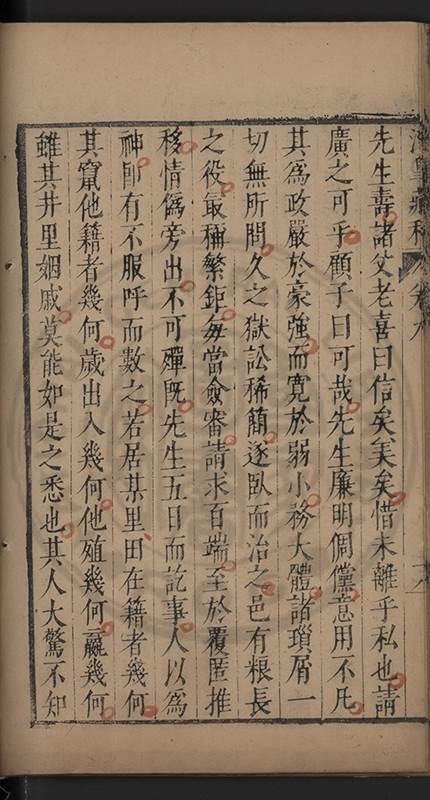 先生壽諸父老喜曰信矣美矣惜未離乎私也請
廣之可乎顧子曰可哉先生廉明倜儻意用不凡
其爲政嚴於豪強而寛於弱小務大體諸瑣屑一
切無所問久之獄訟稀簡遂臥而治之邑有粮長
之役最稱繁鉅每當僉審請求百端至於覆匿推
移情僞旁出不可殫旣先生五日而訖事人以爲
神卽有不服呼而數之若居某里田在籍者幾何
其竄他籍者幾何歲出入幾何他殖幾何羸幾何
雖其井里姻戚莫能如是之悉也其人大驚不知